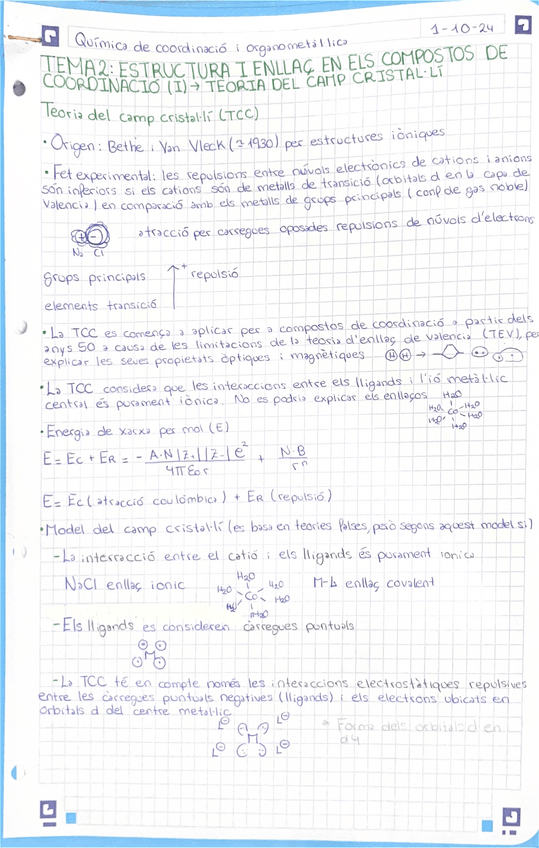 1-10-24
Química de coordinació i organometál·lica
TEMA 2: ESTRUCTURA I ENLLAÇ EN ELS COMPOSTOS DE
COORDINACIÓ (I) → TEORIA DEL CAMP CRISTAL·LÍ
Teoria del camp cristal·lí (TCC)
• Origen: Bethe i Van Vleck (≈1930) per estructures iòniques
• Fet experimental: les repulsions entre núvols electrònics de cations i anions
són inferiors si els cations són de metalls de transició (orbitals d en la capa de
valencia) en comparació amb els metalls de grups principals (conf de gas noble)
+ -
Na Cl
atracció per carregues oposades repulsions de núvols d'electrons
grups principals
+ repulsió
elements transició
• La TCC es comença a aplicar per a compostos de coordinació a partir dels
anys 50 a causa de les limitacions de la teoria d'enllaç de valencia (TEV), per
explicar les seves propietats òptiques i magnètiques H H →
• La TCC considera que les interaccions entre els lligands i l'ió metàl·lic
central és purament iònica. No es podria explicar els enllaços
H2O
H2O Co H2O
H2O H2O
H2O
• Energia de xarxa per mol (E)
E = Ec + ER = - A·N |Z+||Z-| e² / 4πε0 r + N·B / rⁿ
E = Ec (atracció coulómbica) + ER (repulsió)
• Model del camp cristal·lí (es basa en teories falses, però segons aquest model sí)
- La interracció entre el catió i els lligands és purament ionica
NaCl enllaç ionic
H2O
H2O Co H2O
H2O H2O
H2O
M-L enllaç covalent
- Els lligands es consideren càrregues puntuals
M
- La TCC té en compte només les interaccions electrostàtiques repulsives
entre les càrregues puntuals negatives (lligands) i els electrons ubicats en
orbitals d del centre metal·lic
L L
M
L L
* Forma dels orbitals d en
d4